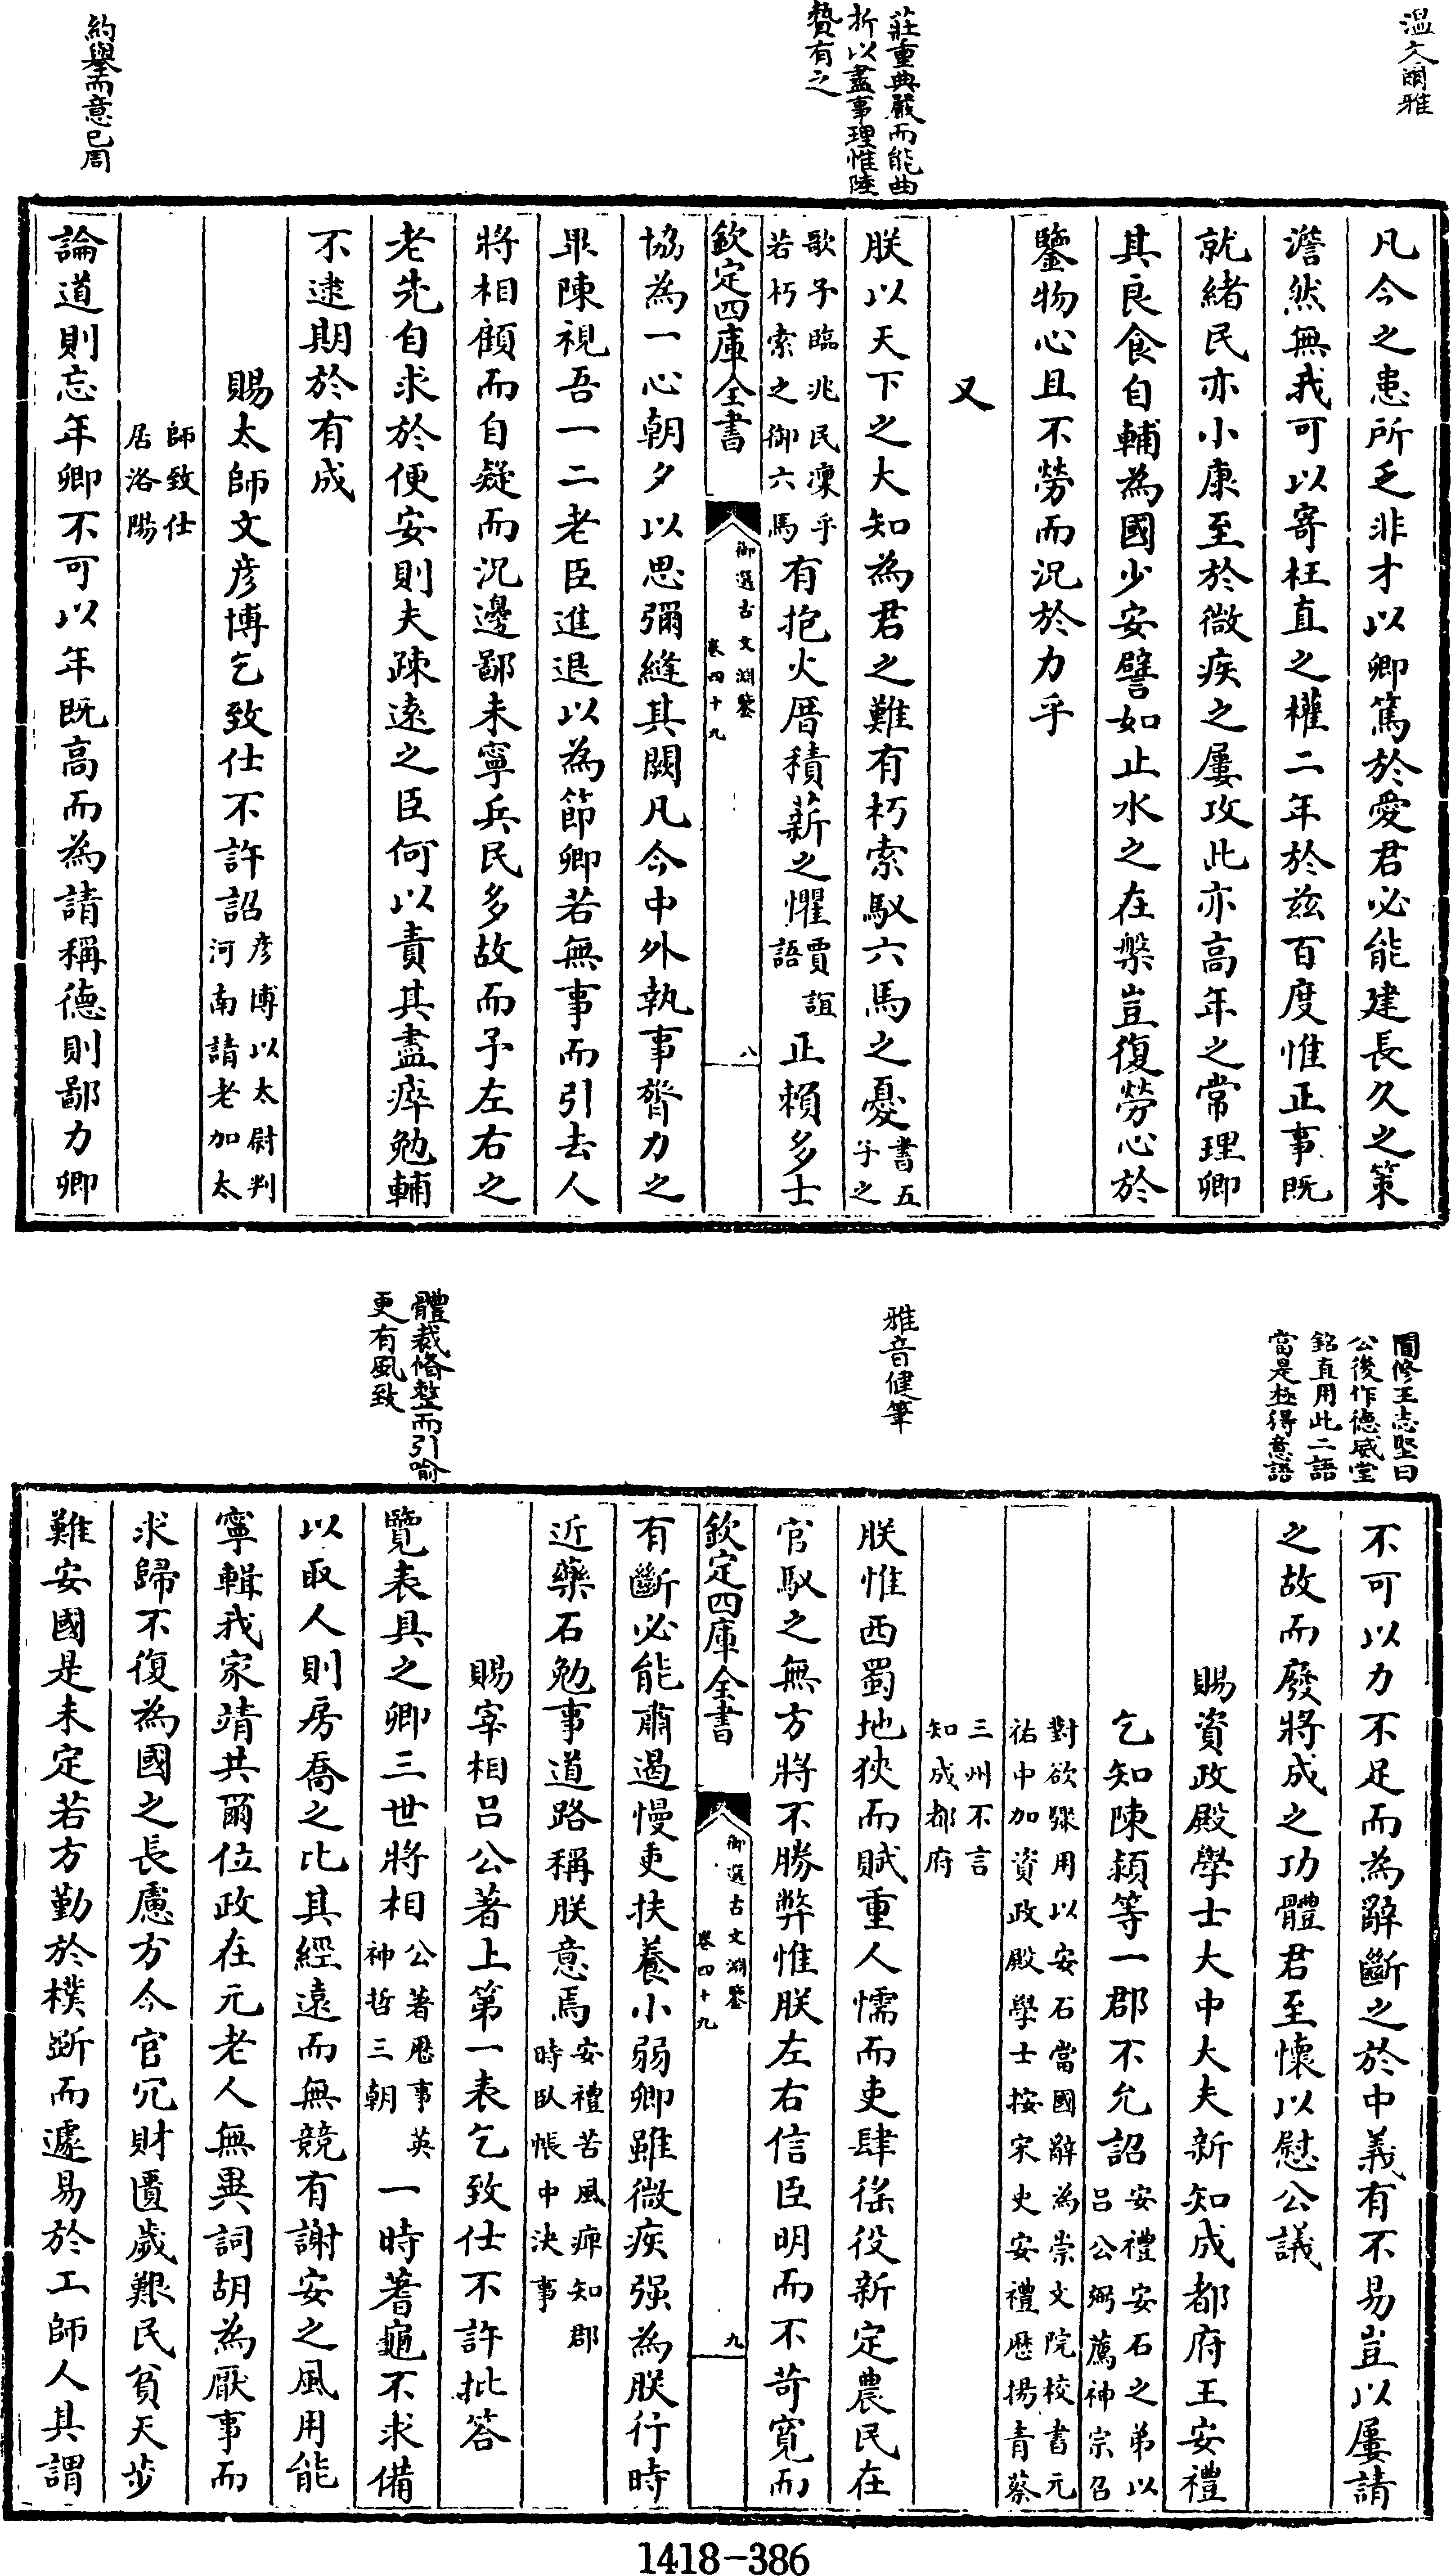 溫文爾雅
莊重典嚴而能曲
折以盡事理惟陸
贄有之
約舉而意已周
凡今之患所乏非才以卿篤於愛君必能建長久之策
澹然無我可以寄枉直之權二年於茲百度惟正事既
就緒民亦小康至於微疾之屢攻此亦高年之常理卿
其良食自輔為國少安譬如止水之在槃豈復勞心於
鑒物心且不勞而況於力乎
又
朕以天下之大知為君之難有朽索馭六馬之憂書五
子之
歌予臨兆民凜乎
若朽索之御六馬有抱火厝積薪之懼賈誼
語正賴多士
欽定四庫全書
御選古文淵鑒
卷四十九
八
協為一心朝夕以思彌縫其闕凡今中外執事膂力之
臣陳視吾一二老臣進退以為節卿若無事而引去人
將相顧而自疑而況邊鄙未寧兵民多故而予左右之
老先自求於便安則夫疎遠之臣何以責其盡瘁勉輔
不逮期於有成
賜太師文彥博乞致仕不許詔彥博以太尉判
河南請老加太
師致仕
居洛陽
論道則忘年卿不可以年既高而為請稱德則鄙力卿
間修王志堅曰
公後作德威堂
銘直用此二語
當是極得意語
雅音健筆
體裁脩整而引喻
更有風致
不可以力不足而為辭斷之於中義有不易豈以屢請
之故而廢將成之功體君至懷以慰公議
賜資政殿學士大中大夫新知成都府王安禮
乞知陳潁等一郡不允詔安禮安石之弟以
呂公弼薦神宗召
對欲驟用以安石當國辭為崇文院校書元
祐中加資政殿學士按宋史安禮歷揚青蔡
三州不言
知成都府
朕惟西蜀地狹而賦重人懦而吏肆徭役新定農民在
官馭之無方將不勝弊惟朕左右信臣明而不苛寬而
欽定四庫全書
御選古文淵鑒
卷四十九
九
有斷必能肅遏慢吏扶養小弱卿雖微疾强為朕行時
近藥石勉事道路稱朕意焉安禮苦風痺知郡
時臥帳中決事
賜宰相呂公著上第一表乞致仕不許批答
覽表具之卿三世將相公著歷事英
神哲三朝一時蓍龜不求備
以取人則房喬之比其經遠而無競有謝安之風用能
寧輯我家靖共爾位政在元老人無異詞胡為厭事而
求歸不復為國之長慮方今官冗財匱歲艱民貧天步
難安國是未定若方勤於樸斲而遽易於工師人其謂
1418-386